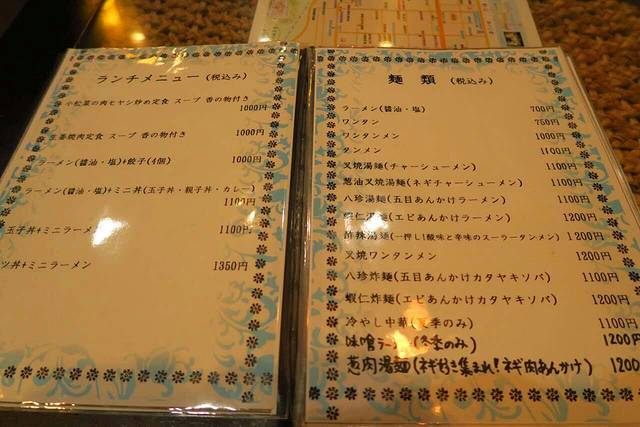 ランチメニュー (税込み)
小松菜の肉モヤシ炒め定食 スープ 香の物付き
1000円
生姜焼肉定食 スープ 香の物付き
1000円
ラーメン(醤油・塩)+餃子(4個) 1000円
ラーメン(醤油・塩)+ミニ丼(玉子丼・親子丼・カレー)
1100円
玉子丼+ミニラーメン 1100円
ツ丼+ミニラーメン 1350円
麺類 (税込み)
ラーメン(醤油・塩) 700円
ワンタン 750円
ワンタンメン 1000円
タンメン 1100円
叉焼湯麺(チャーシューメン) 1100円
葱油叉焼湯麺(ネギチャーシューメン) 1200円
八珍湯麺(五目あんかけラーメン) 1100円
蝦仁湯麺(エビあんかけラーメン) 1200円
酢辣湯麺(一押し!酸味と辛味のスーラータンメン) 1200円
叉焼ワンタンメン 1200円
八珍炸麺(五目あんかけカタヤキソバ) 1100円
蝦仁炸麺(エビあんかけカタヤキソバ) 1200円
冷やし中華(夏季のみ) 1100円
味噌ラーメン(冬季のみ) 1200円
葱肉湯麺(ネギ好き集まれ!ネギ肉あんかけ) 1200